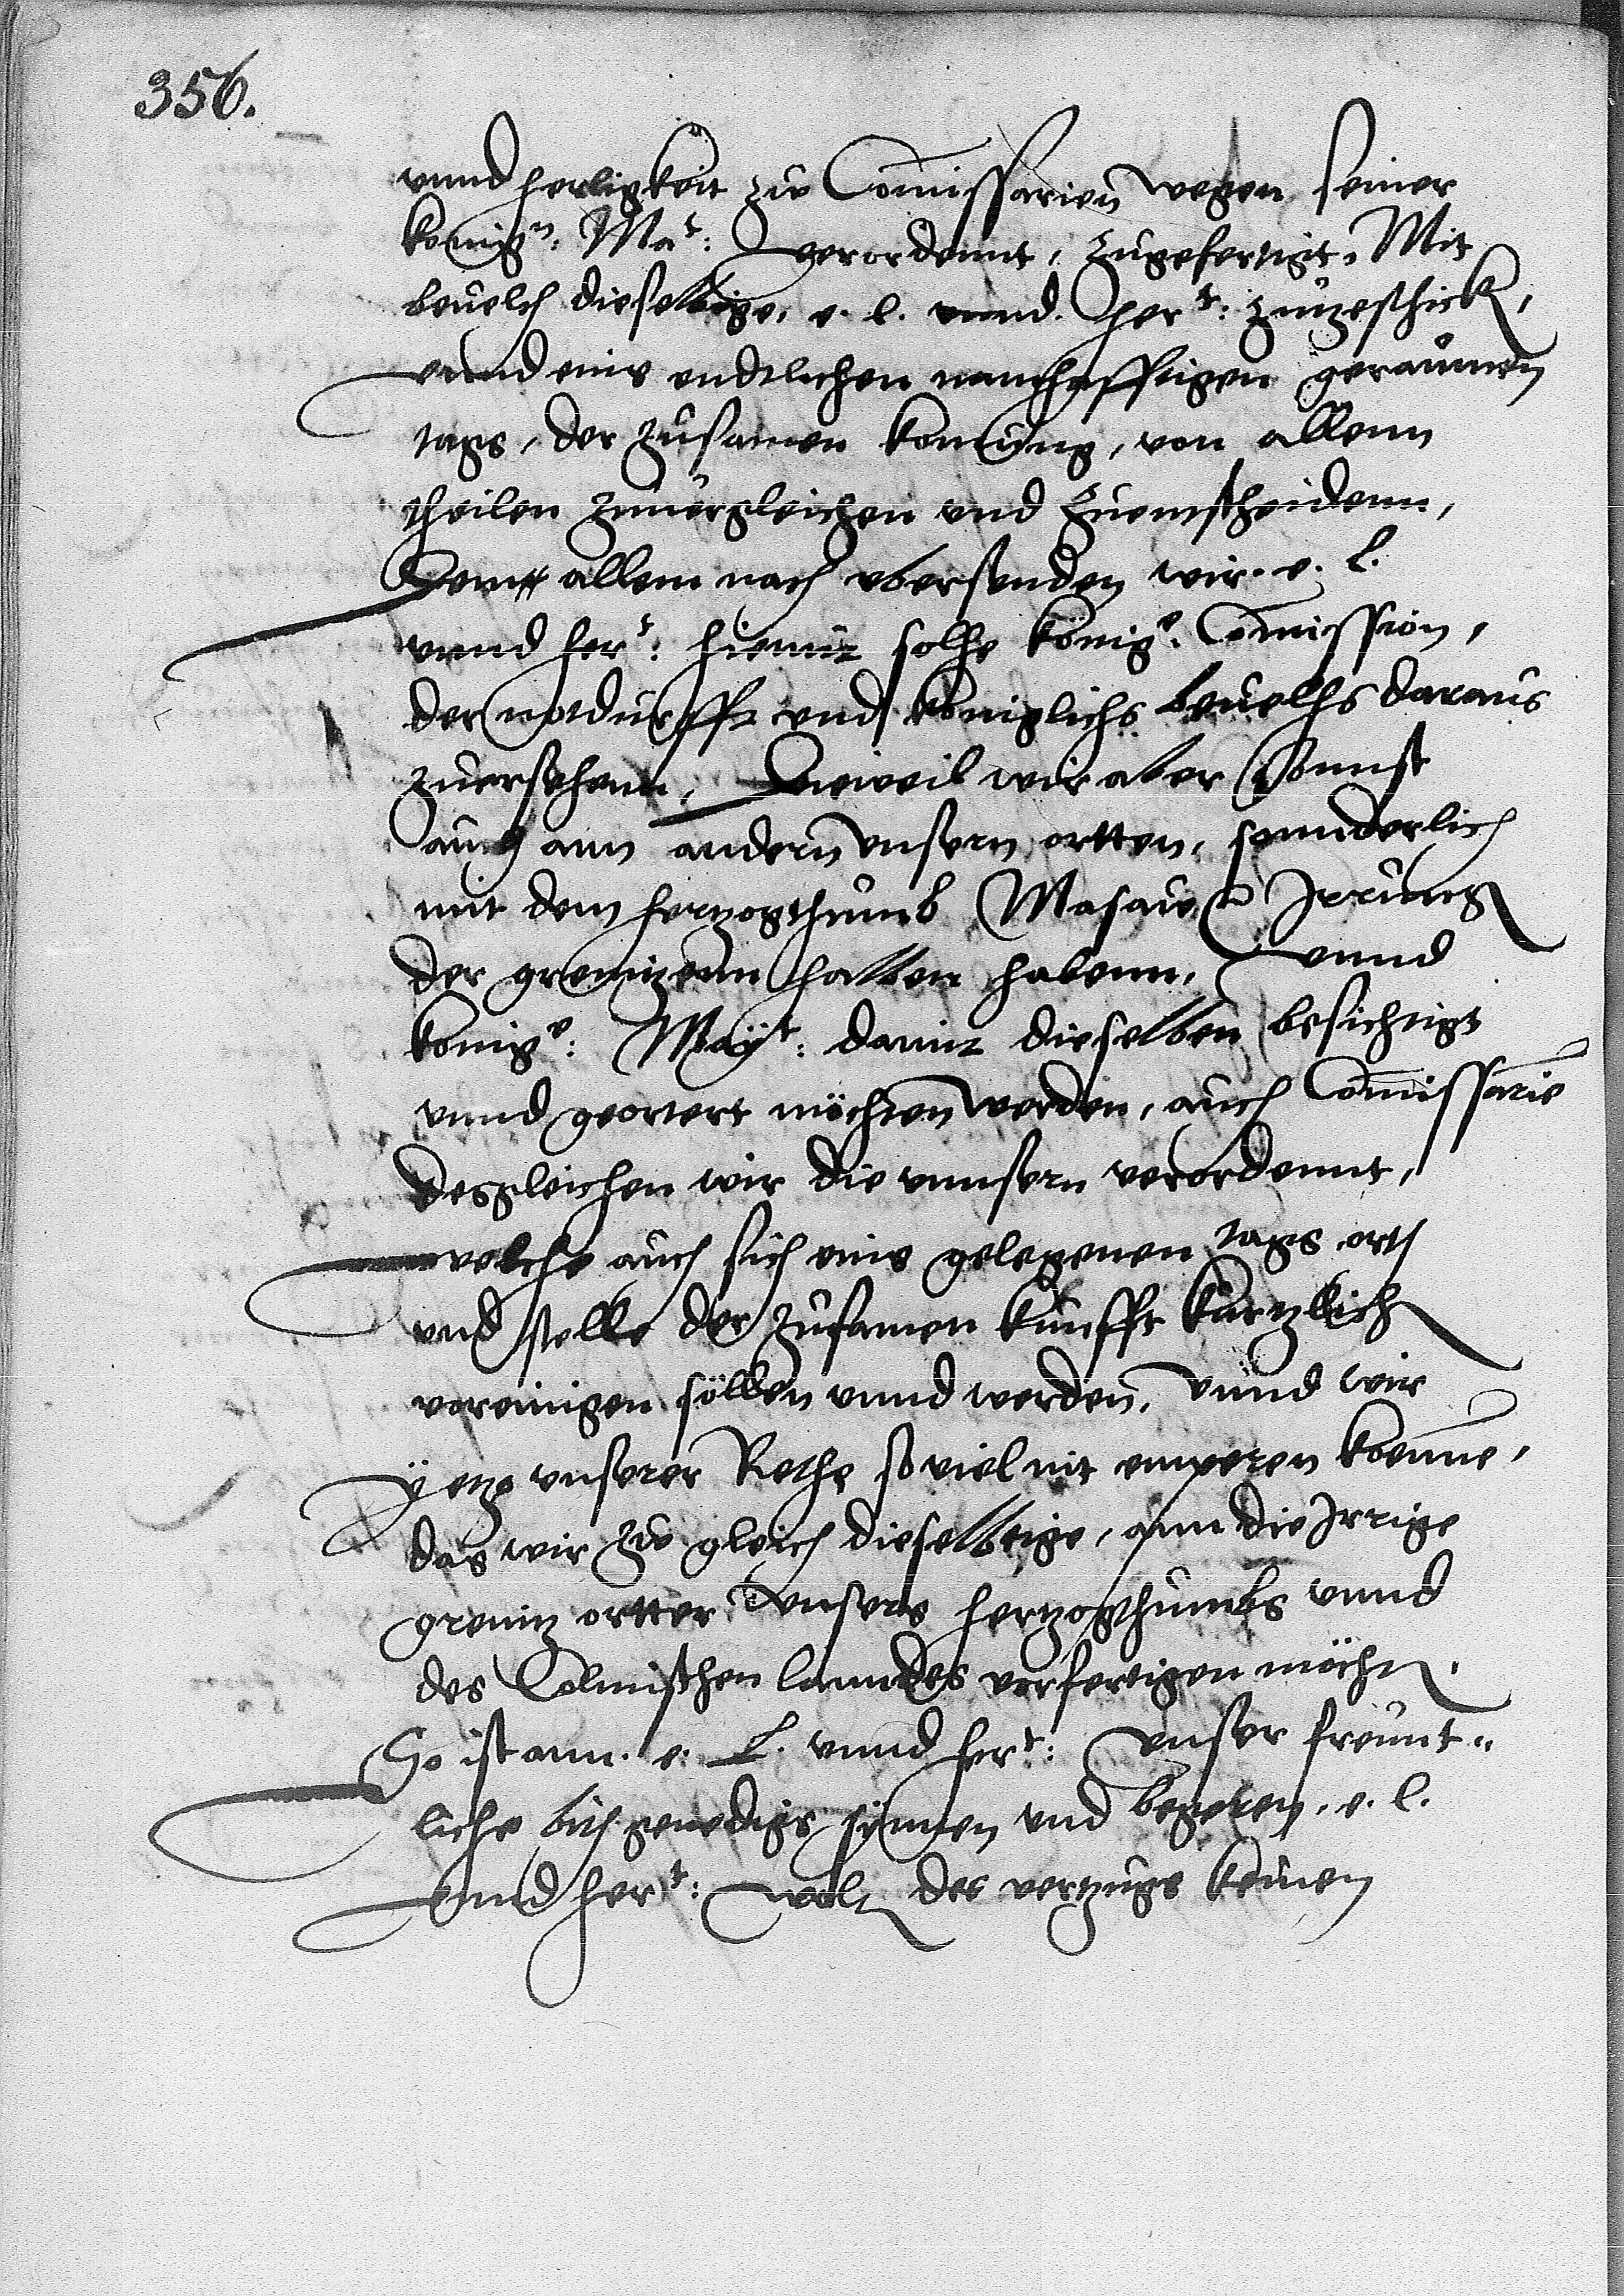 356.
vnnd herligkeit zu Comissarien wegen seiner
konign: Mat: verordennt, zugefertigt. Mit
beuelch dieselbige, e. l. vnnd. hert: zuzeschick,
vnnd eins endtlichen namhafftigen geraumen
tags, der zusamen komung, von allenn
theilen zuuergleichen vnd zuentscheidenn,
Dem allem nach vbersenden wir. e. l.
vnnd hert: hiemit solhe könige: Comission,
der notdurfft vnd koniglichs beuelhs daraus
zuersehenn, Dieweil wir aber sonnst
auch ann andern vnsern ortten, sonnderlich
mit dem hertzogthumb Masaw Irrung
der grenitzenn halben habenn, vnnd
konige: Mayt: damit dieselben besichtigt
vnnd georttert möchten werden, auch Comissarie
desgleichen wir die vnnsern verordennt,
welche auch sich eins gelegenen tags ort
vnd stelle der zusamen kunfft kurtzlich
voreinigen söllen vnnd werden, Vnnd wir
yetzo vnserer Rethe so viel nit emperen koenne,
das wir zu gleich dieselbtige, ann die Irrige
grenitz ortter vnsers hertzogthumbs vnnd
des Colmischen lanndes verfertigen möchten.
So ist ann. e. L. vnnd hert: vnser freunt-
lichs bith genedigs synnen vnd begeren, e. l.
vnnd hert: woltz des vertzugs keinen